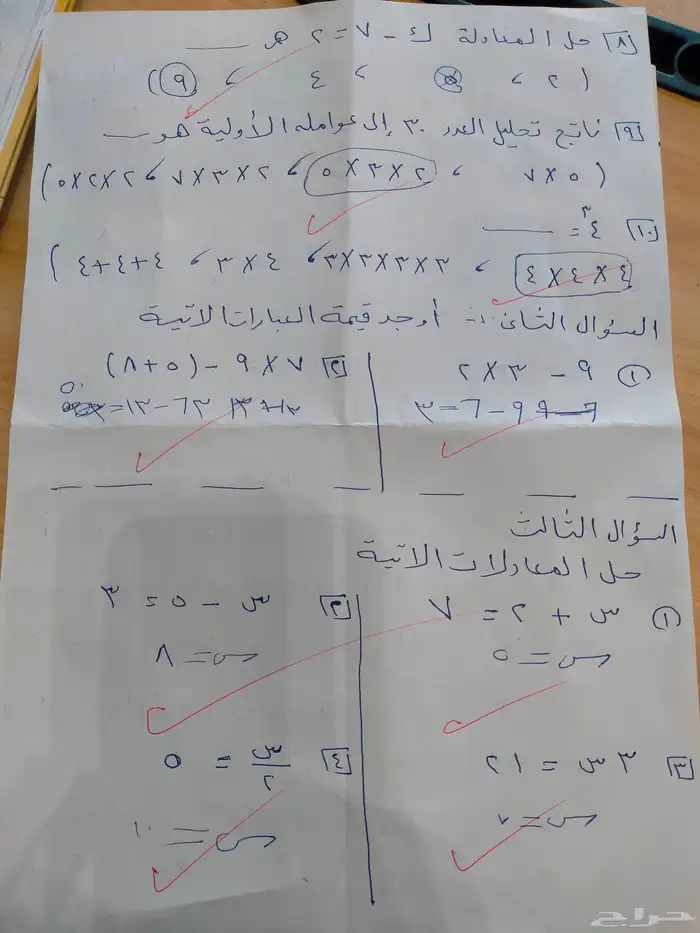 [٨] حل المعادلة ك - ٧ = ٢ هي ـــــ
( ٢ ، ، ٤ ، ٩ )
[٩] ناتج تحليل العدد ٣٠ إلى عوامله الأولية هو ـــــ
( ٥ × ٧ ، ٢ × ٣ × ٥ ، ٢ × ٣ × ٧ ، ٢ × ٢ × ٥ )
[١٠] ٤^٣ = ـــــ
( ٤ × ٤ × ٤ ، ٣ × ٣ × ٣ × ٣ ، ٤ × ٣ ، ٤ + ٤ + ٤ )
السؤال الثاني :- أوجد قيمة العبارات الاتية
① ٩ - ٣ × ٢
٩ - ٦ = ٣
[٢] ٧ × ٩ - (٥ + ٨)
٦٣ - ١٣ = ٥٠
السؤال الثالث
حل المعادلات الاتية
① س + ٢ = ٧
س = ٥
[٢] س - ٥ = ٣
س = ٨
[٣] ٣ س = ٢١
س =
[٤] س/٢ = ٥
س = ١٠
حراج